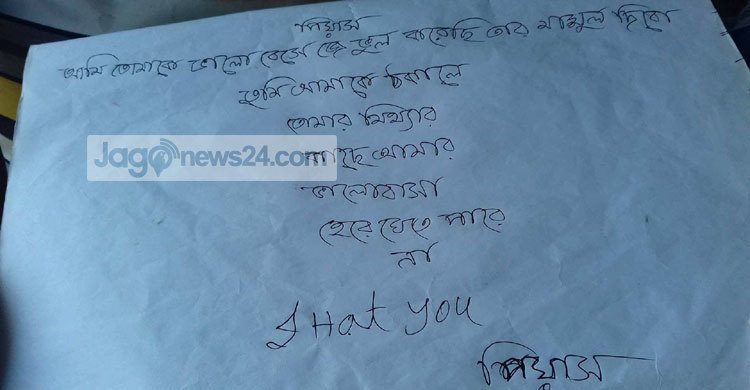 পিয়াস
আমি তোমাকে ভালো বেসে যে ভুল করেছি তার মাসুল দিবো
তুমি আমাকে ঠকালে
তোমার মিথ্যার
Jagonews24.com
কাছে আমার
ভালোবাসা
হেরে যেতে পারে
না
I Hat you
পিয়াস